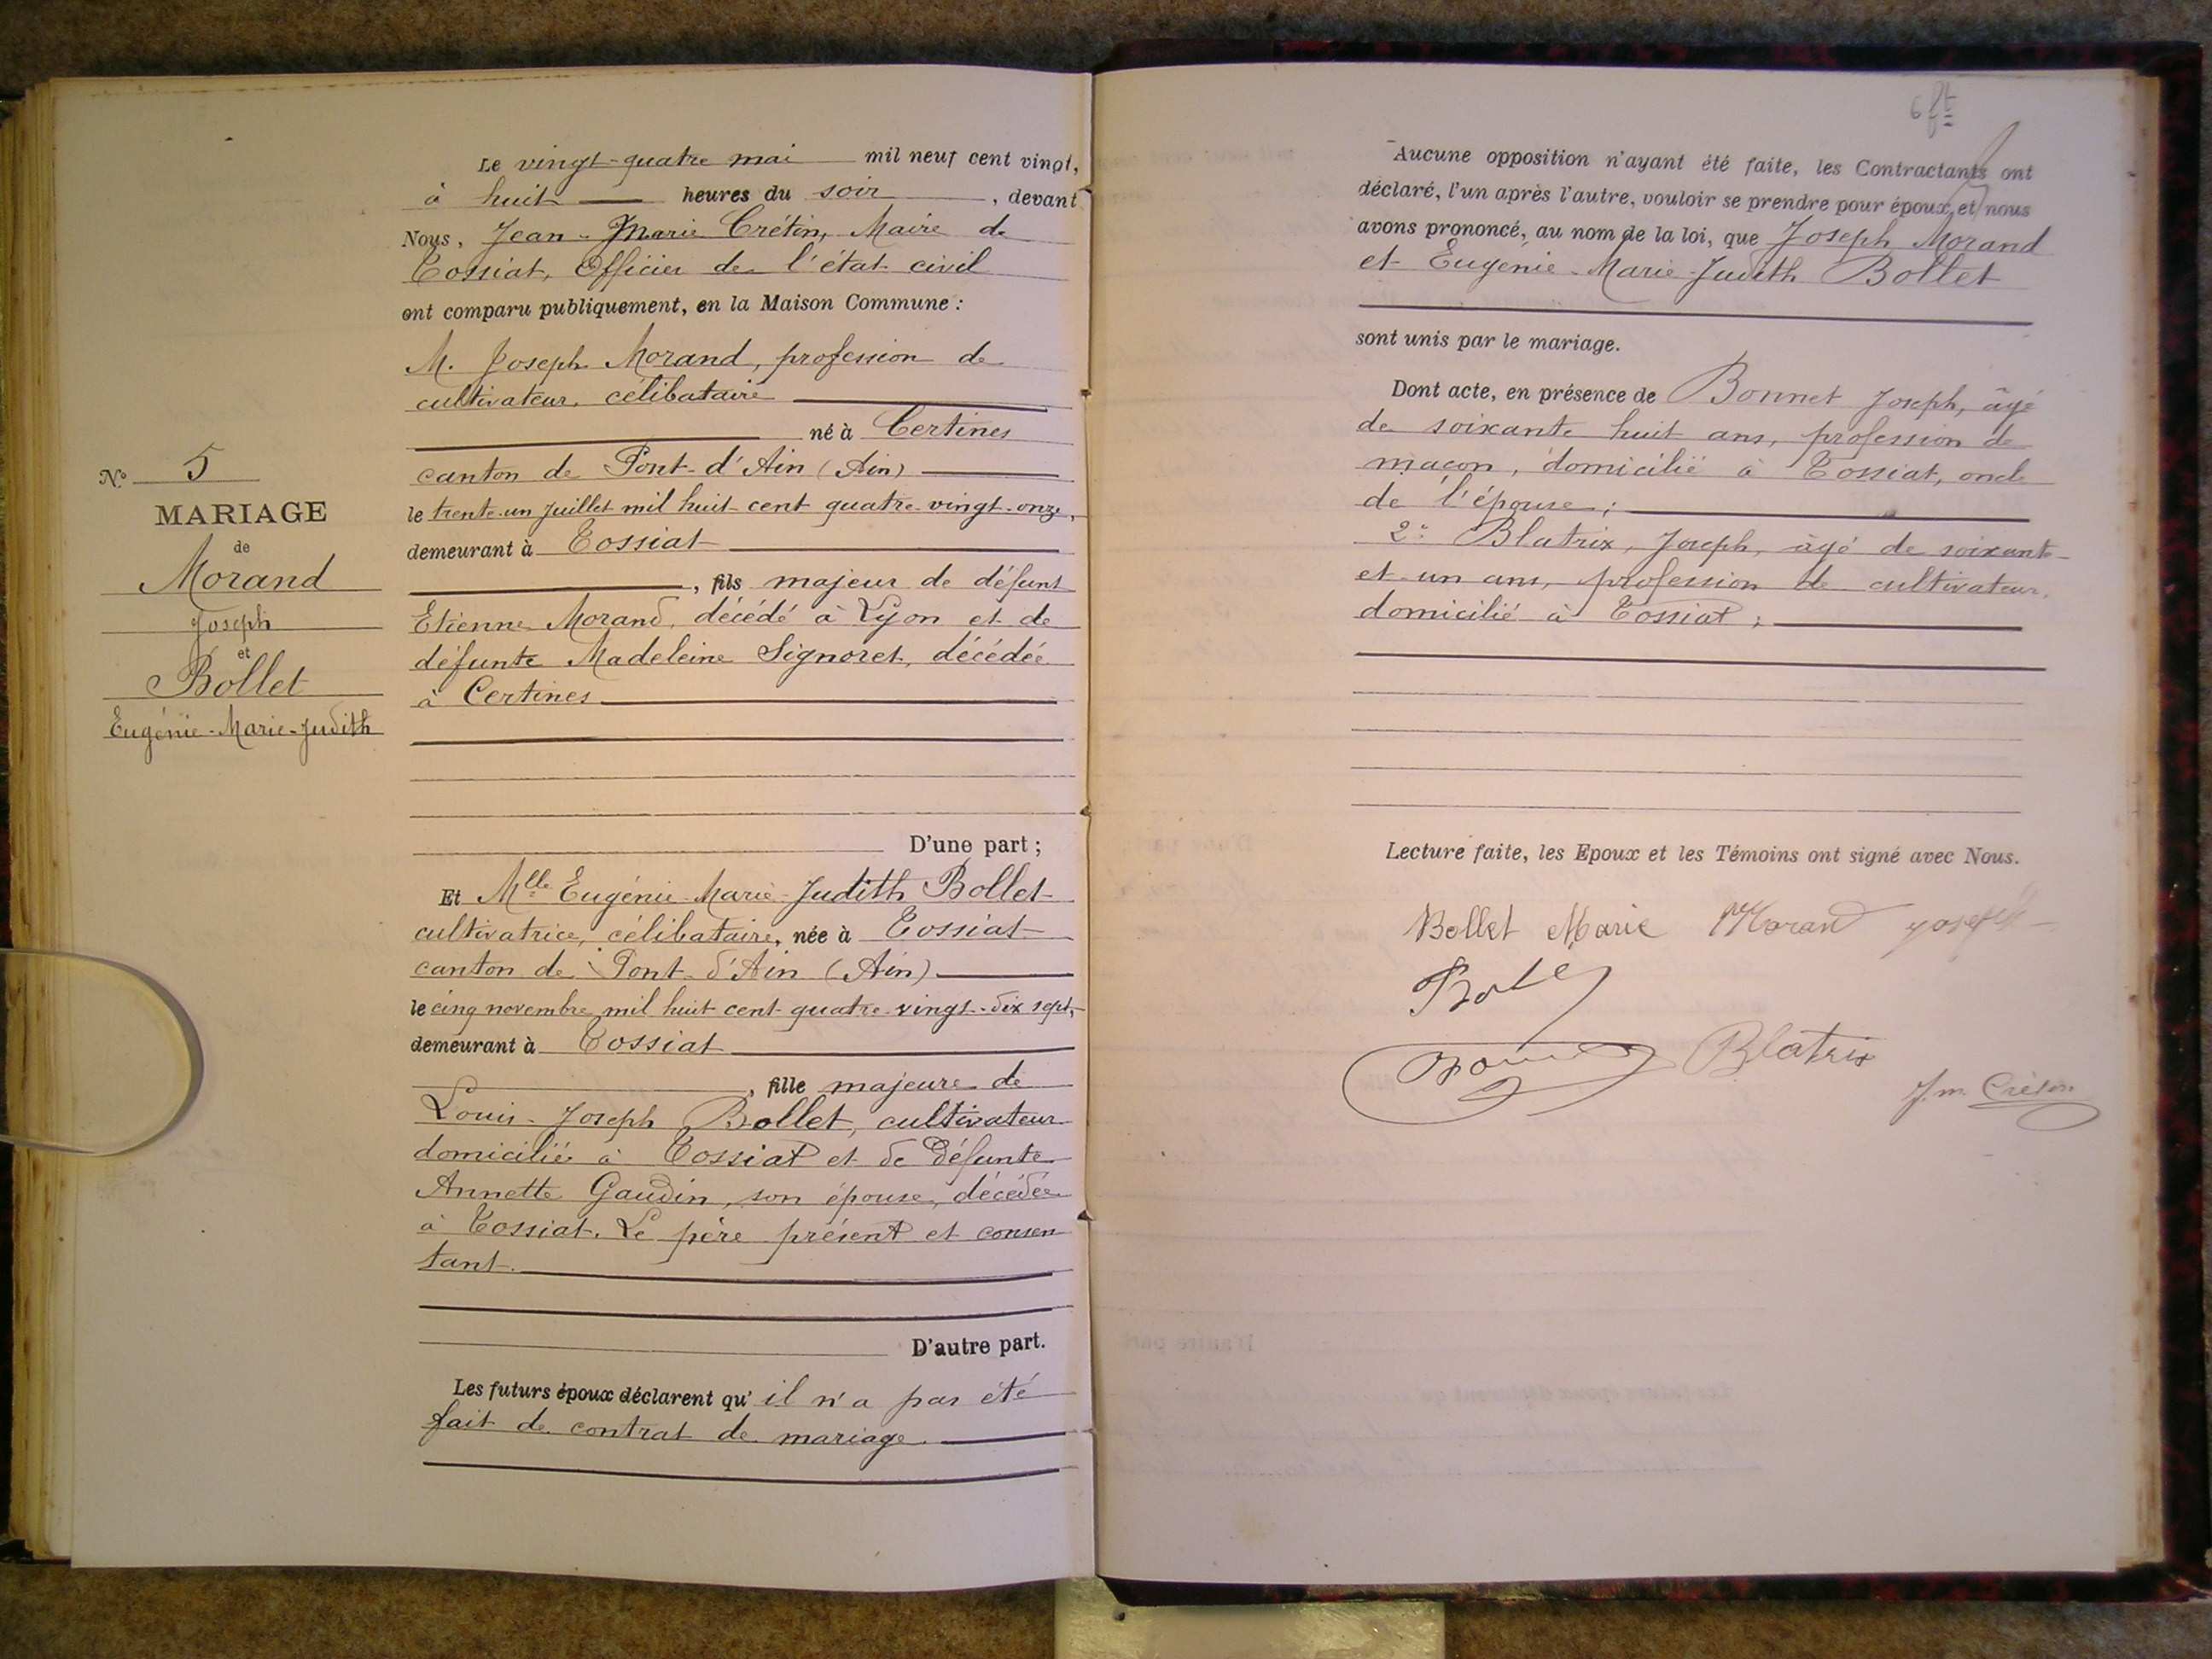 Le vingt-quatre mai mil neuf cent vingt,
à huit heures du soir, devant
Nous, Jean-Marie Crétin, Maire de
Tossiat, Officier de l'état civil
ont comparu publiquement, en la Maison Commune :
M. Joseph Morand, profession de
cultivateur, célibataire
né à Certines
canton de Pont-d'Ain (Ain)
le trente-un juillet mil huit cent quatre-vingt-onze,
demeurant à Tossiat
, fils majeur de défunt
Etienne Morand, décédé à Lyon et de
défunte Madeleine Signoret, décédée
à Certines
D'une part ;
Et Mlle Eugénie-Marie-Judith Bollet
cultivatrice, célibataire, née à Tossiat
canton de Pont-d'Ain (Ain)
le cinq novembre mil huit cent quatre-vingt-dix sept,
demeurant à Tossiat
, fille majeure de
Louis-Joseph Bollet, cultivateur
domicilié à Tossiat et de défunte
Annette Gaudin, son épouse, décédée
à Tossiat. Le père présent et consen
tant.
D'autre part.
Les futurs époux déclarent qu'il n'a pas été
fait de contrat de mariage.
No 5
MARIAGE
de
Morand
Joseph
et
Bollet
Eugénie-Marie-Judith
6 ft
Aucune opposition n'ayant été faite, les Contractants ont
déclaré, l'un après l'autre, vouloir se prendre pour époux, et nous
avons prononcé, au nom de la loi, que Joseph Morand
et Eugénie-Marie-Judith Bollet
sont unis par le mariage.
Dont acte, en présence de Bonnet Joseph, âgé
de soixante huit ans, profession de
maçon, domicilié à Tossiat, oncle
de l'épouse ;
2° Blatrix, Joseph, âgé de soixante
et un ans, profession de cultivateur,
domicilié à Tossiat ;
Lecture faite, les Epoux et les Témoins ont signé avec Nous.
Bollet Marie Morand joseph
Blatrix
J. m. Crétin